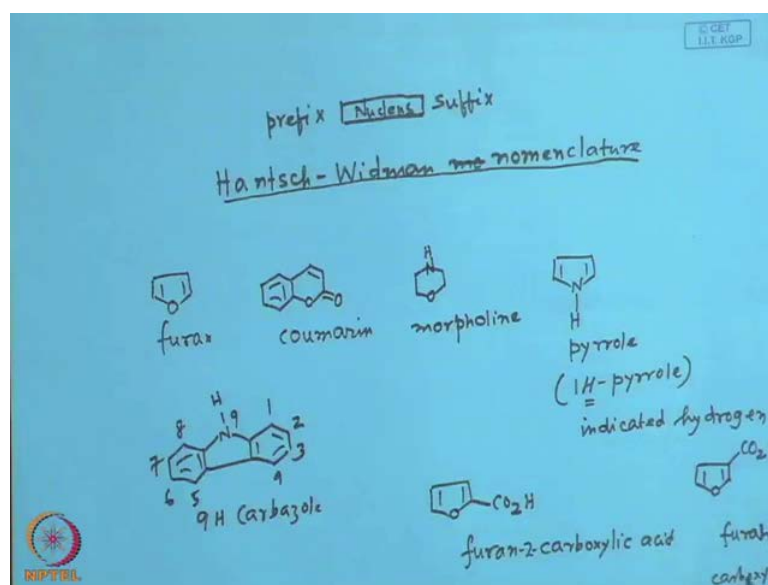 © CET
I.I.T. KGP
prefix Nucleus suffix
Hantsch-Widman nomenclature
furan
coumarin
morpholine
pyrrole
(1H-pyrrole)
indicated hydrogen
O
O
O
H
N
O
N
H
H
N
9
1
2
3
4
5
6
7
8
9H Carbazole
O
CO2H
furan-2-carboxylic acid
O
CO2
furan
carboxy
NPTEL